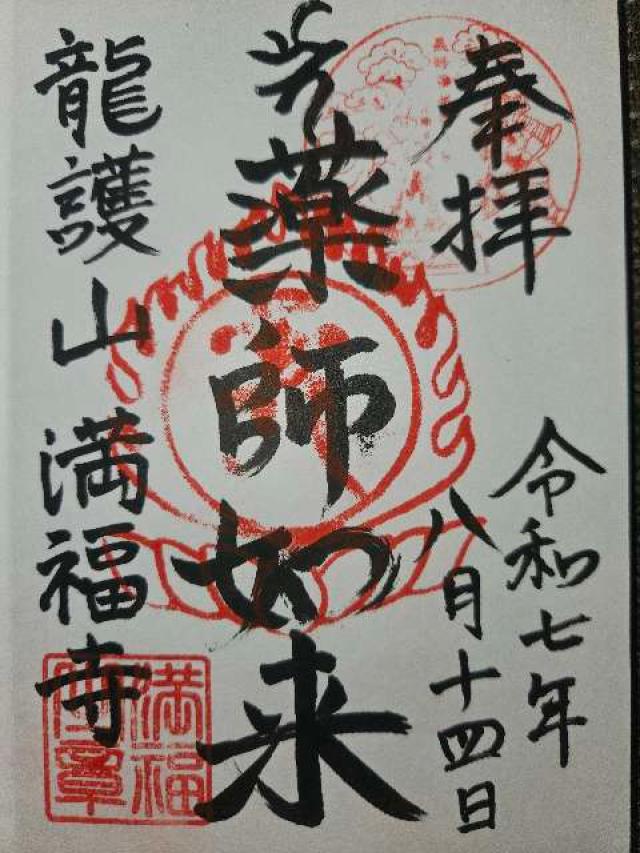 奉拝
令和七年
八月十四日
薬師如来
龍護山満福寺
満福